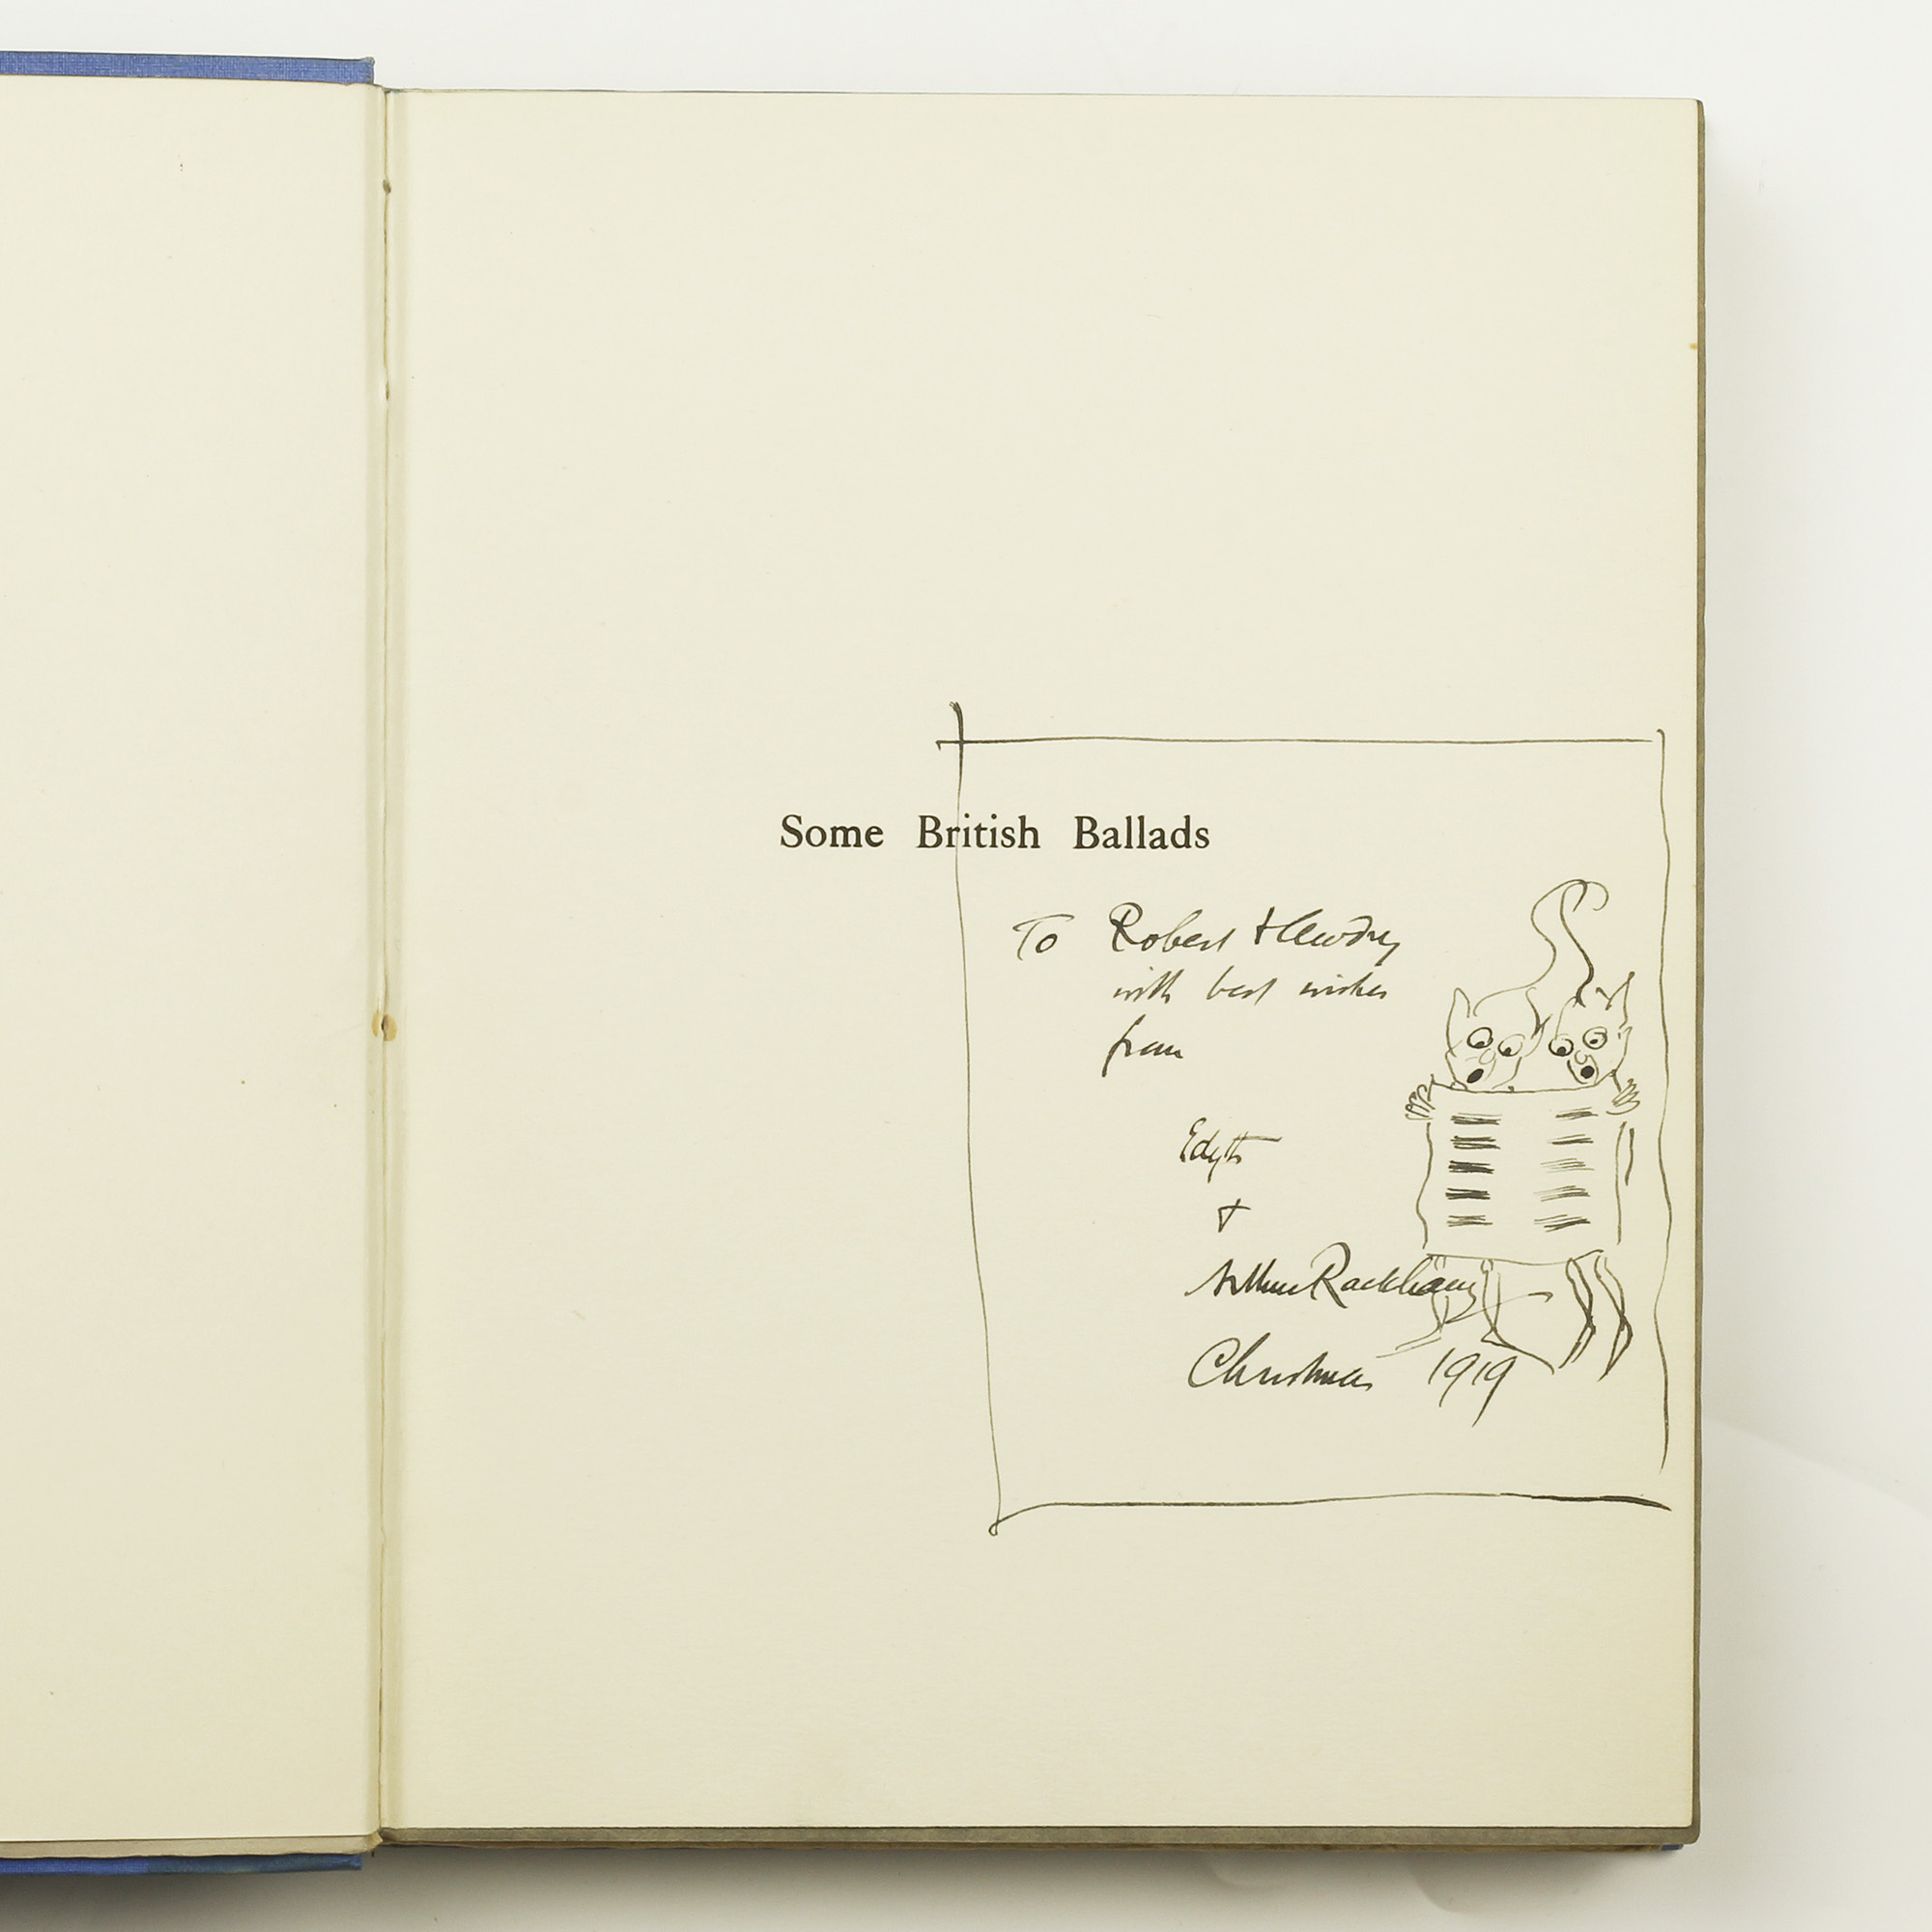 Some British Ballads
To Robert + Audrey
with best wishes
from
Edyth
+
Arthur Rackham
Christmas 1919